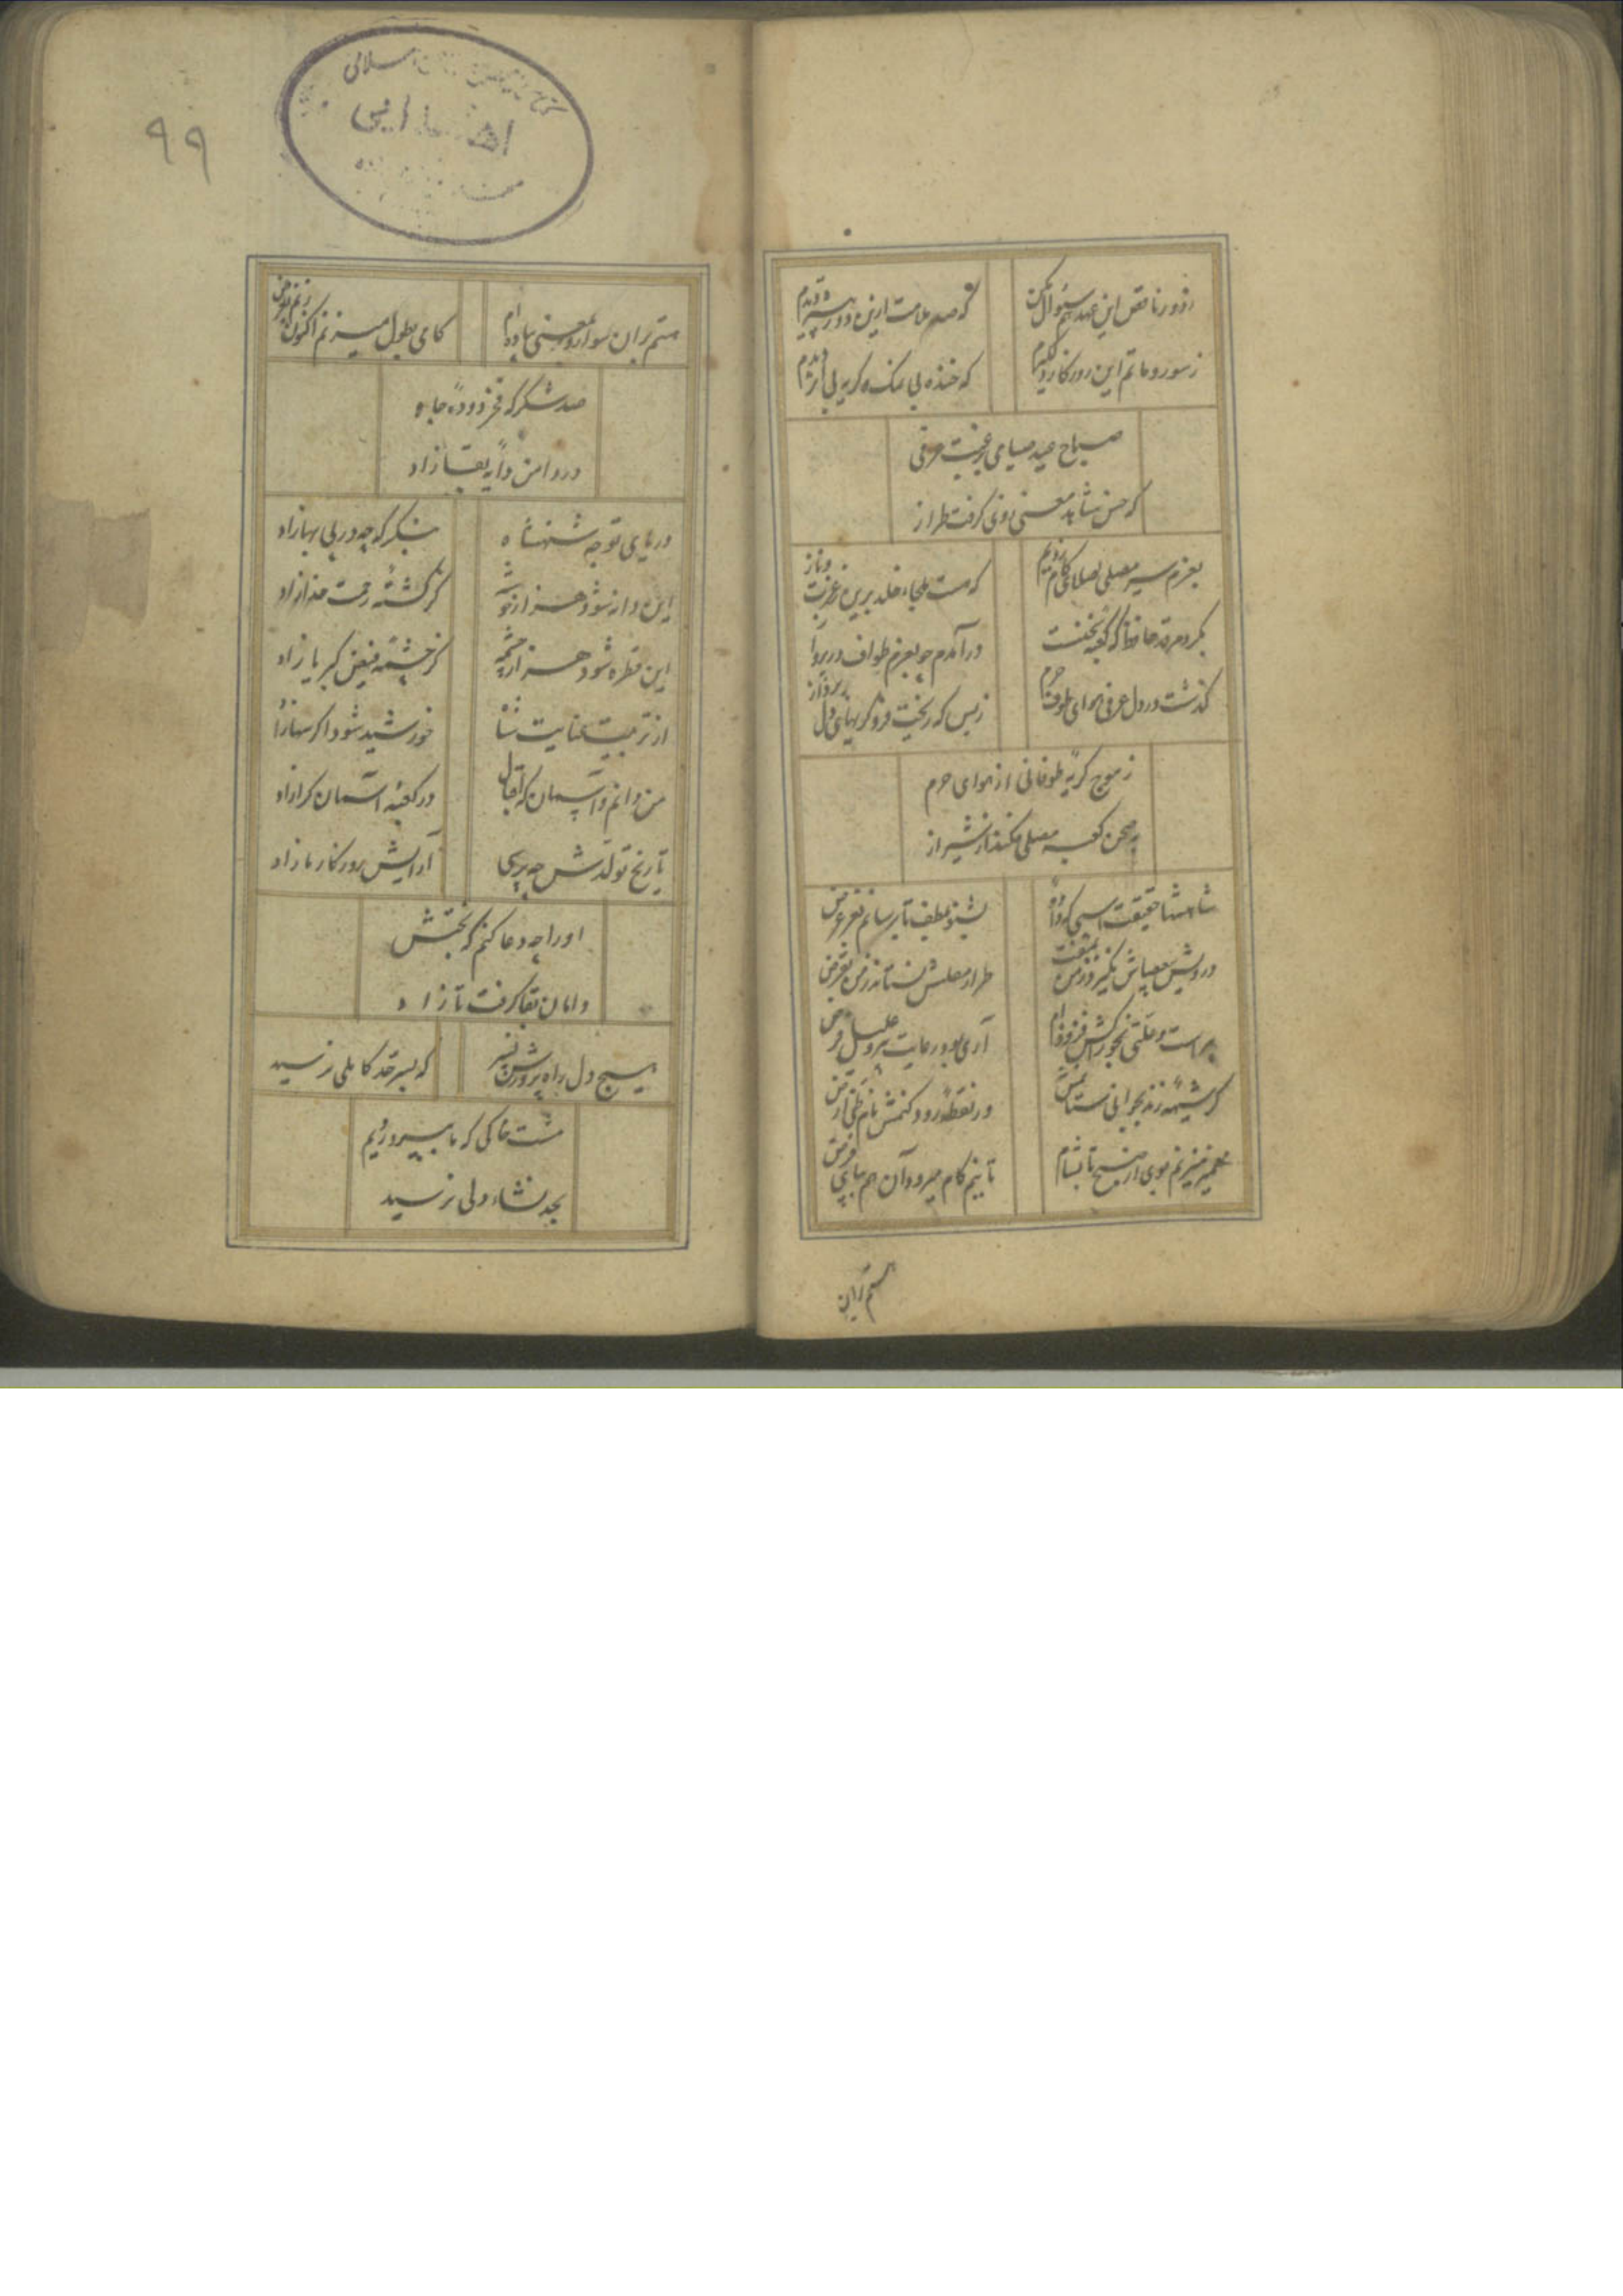 ز دور ناقص این عهد هم سئوال مکن
که صد ملامت ازین دور بی
ز سور و ماتم این روزگار
که خنده بی نمک و گریه بی اثر دیدم
صباح عید صیامی برغبت عرفی
که حسن شاهد معنی ازوی گرفت طراز
بعزم سیر مصلی بصلای کام زدیم
که هست ملجاء خلد برین ز عزت و ناز
بگرد مرقد حافظ که کعبه سخنست
درآمدم چو بعزم طواف در پرواز
گذشت در دل عرفی هوای طوف حرم
ز بس که ریخت فرو گریهای دل
ز موج گریه طوفانی از هوای حرم
به صحن کعبه مصلی فکند از شیراز
شاهنشها حقیقت اسبی که داده
بشنو بلطف تا برسانم بعرض عرض
درویش
طرار مفلسش نستاند ز من بقرض
پیر است و علتی نخورد کش فزوده ام
آری بود رعایت پیر و علیل فرض
گر شیهه زند بجوانی
در نقطه رود کنمش نام طی ارض
مهمیز میزنم بوی از صبح تا بشام
تا نیم گام میرود آن هم بپای فرض
هستم بران
۹۹
هستم بران سوار و بمعنی پیاده ام
گامی بطول میزنم اکنون
صد شکر که فخر دوده جاه
در دامن دایه بقا زاد
دریای توجه شهنشاه
بنگر که چه در بی بها زاد
این دانه شود هزار خوشه
کز کشته رحمت خدا زاد
این قطره شود هزار چشمه
کز چشمه فیض کبریا زاد
از تربیت عنایت شاه
خورشید شود اگر سها زاد
من دانم و آسمان که اقبال
در کعبه آسمان کرا زاد
تاریخ تولدش چه پرسی
آرایش روزگار ما زاد
او را چه دعا کنم که بختش
دامان بقا گرفت تا زاد
هیچ دل راه پرورش
که بسرحد کاملی نرسید
مشت خاکی که ما بپروردیم
بحد نشاء دلی نرسید